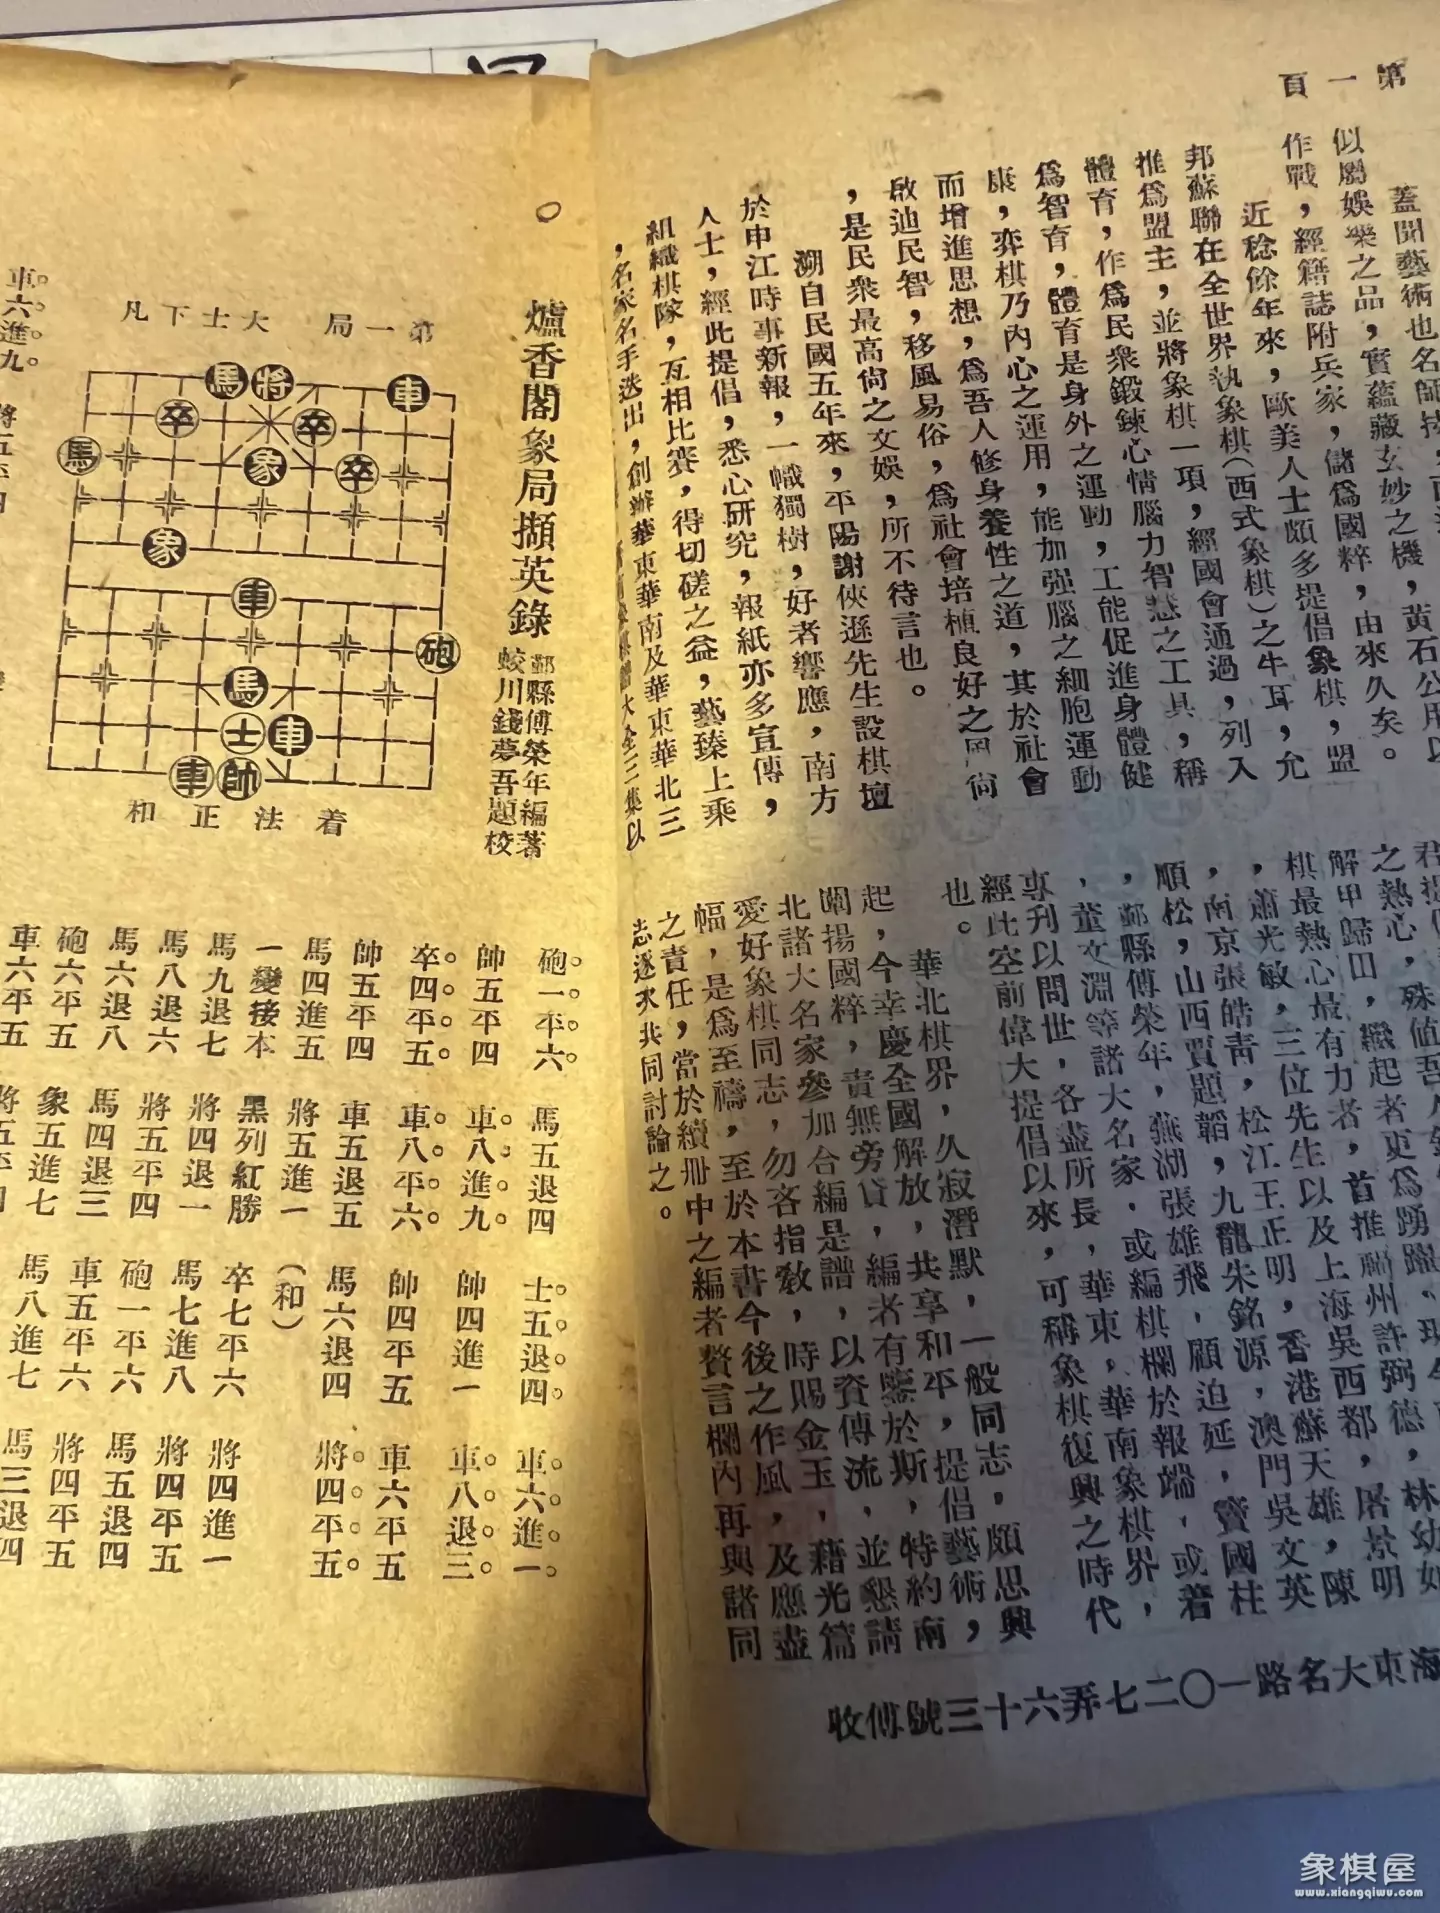 第一頁
蓋聞藝術也名師技
似屬娛樂之品，實蘊藏玄妙之機，黃石公用以
作戰，經籍誌附兵家，儲爲國粹，由來久矣。
近稔餘年來，歐美人士頗多提倡象棋，盟
邦蘇聯在全世界執象棋（西式象棋）之牛耳，允
推爲盟主，並將象棋一項，經國會通過，列入
體育，作爲民衆鍛鍊心情腦力智慧之工具，稱
爲智育，體育是身外之運動，工能促進身體健
康，弈棋乃內心之運用，能加强腦之細胞運動
而增進思想，爲吾人修身養性之道，其於社會
啟迪民智，移風易俗，爲社會培植良好之風尚
，是民衆最高尙之文娛，所不待言也。
溯自民國五年來，平陽謝俠遜先生設棋壇
於申江時事新報，一幟獨樹，好者響應，南方
人士，經此提倡，悉心研究，報紙亦多宣傳，
組織棋隊，互相比賽，得切磋之益，藝臻上乘
，名家名手迭出，創辦華東華南及華東華北三
大全三集以
君提
之熱心，殊值吾人
解甲歸田，繼起者更爲踴躍
棋最熱心最有力者，首推福州許弼德，林幼如
，蕭光敏，三位先生以及上海吳西都，屠景明
，南京張皓靑，松江王正明，香港蘇天雄，陳
順松，山西賈題韜，九龍朱銘源，澳門吳文英
，鄞縣傅榮年，蕪湖張雄飛，顧迫延，竇國柱
，董文淵等諸大名家，或編棋欄於報端，或着
專刊以問世，各盡所長，華東，華南象棋界，
經此空前偉大提倡以來，可稱象棋復興之時代
也。
華北棋界，久寂潛默，一般同志，頗思興
起，今幸慶全國解放，共享和平，提倡藝術，
闡揚國粹，責無旁貸，編者有鑒於斯，特約南
北諸大名家參加合編是譜，以資傳流，並懇請
愛好象棋同志，勿吝指敎，時賜金玉，藉光篇
幅，是爲至禱，至於本書今後之作風，及應盡
之責任，當於續冊中之編者贅言欄內再與諸同
志逐次共同討論之。
海東大名路一〇二七弄六十三號傅收
爐香閣象局擷英錄
鄞縣傅榮年編著
蛟川錢夢吾題校
第一局　大士下凡
馬 將 車
卒 卒
馬 象 卒
象
車
砲
馬
士 車
車 帥
着法正和
砲。一。平。六。　馬五退四　士。五。退。四。　車。六。進。一。
帥五平四　車。八。進。九。　帥四進一　車。八。退。三。
卒。四。平。五。　車。八。平。六。　帥四平五　車六平五
帥五平四　車五退五　馬六退四　將。四。平。五。
馬四進五　將五進一　（和）
一變接本　黑列紅勝
馬九退七　將四退一　卒七平六　將四進一
馬八退六　將五平四　馬七進八　將四平五
馬六退八　馬四退三　砲一平六　馬五退四
砲六平五　象五進七　車五平六　將四平五
車六平五　將五平四　馬八進七　馬三退四
車。六。進。九。　將五平四